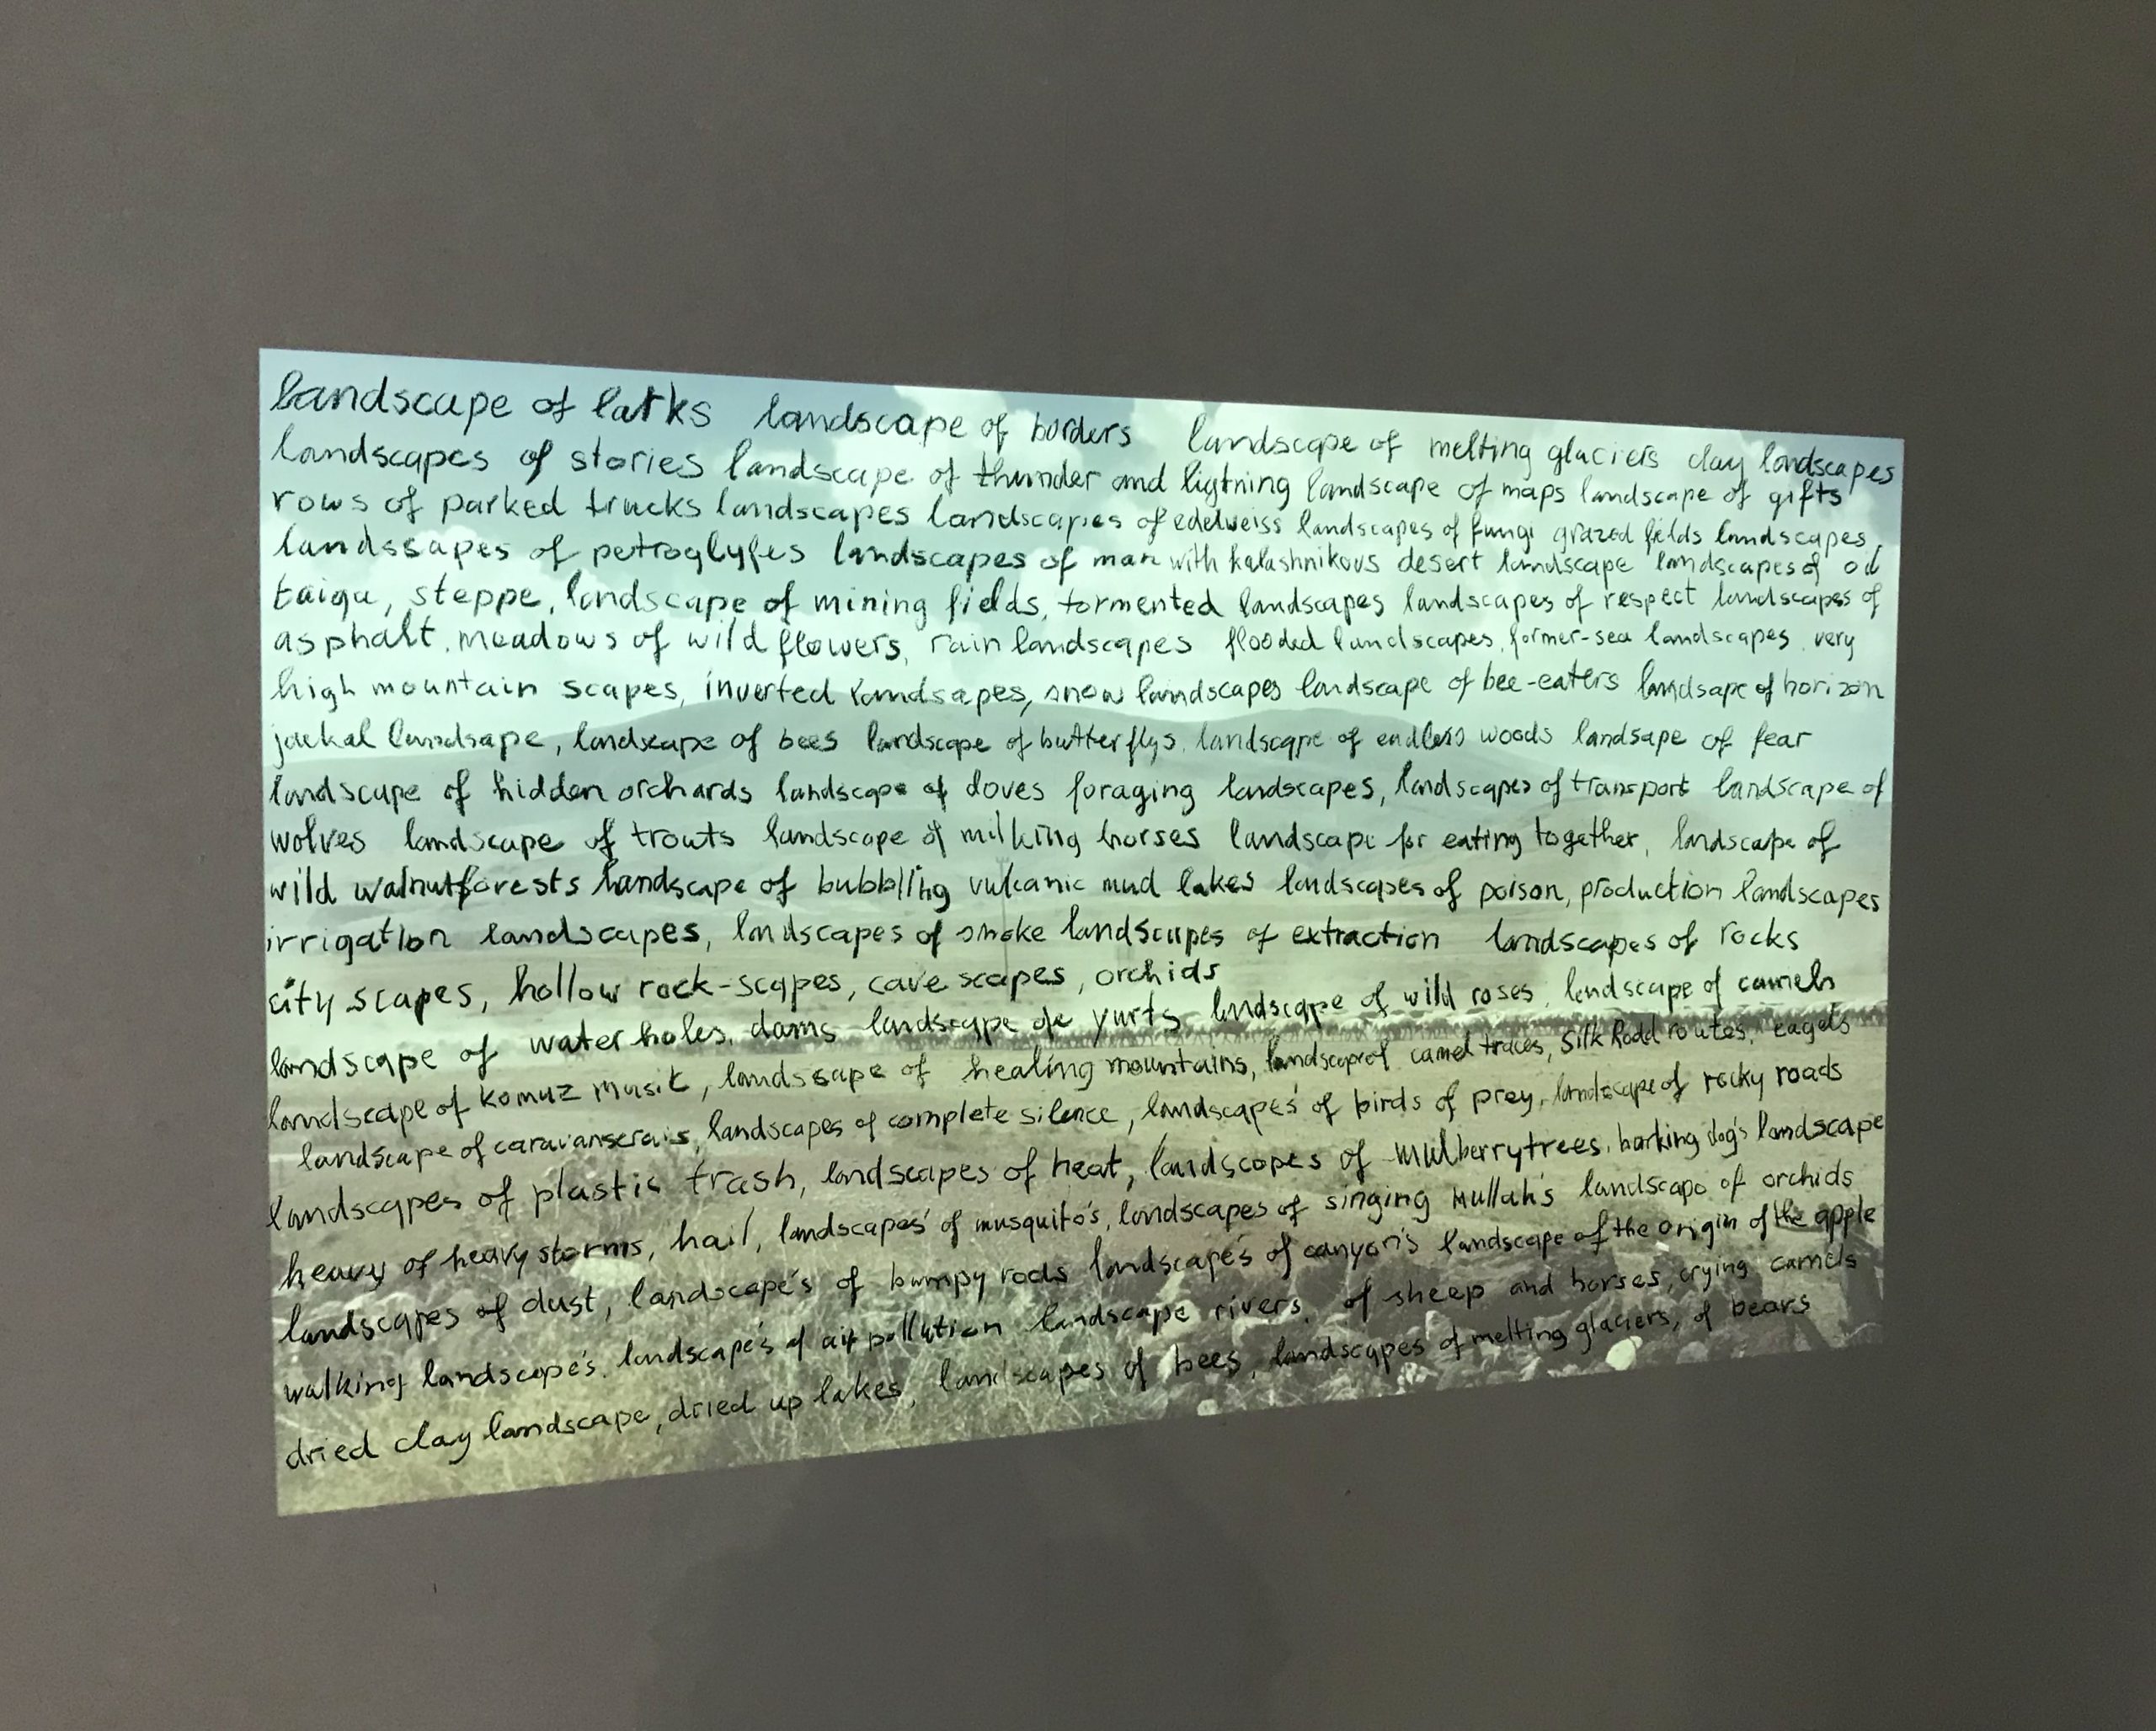 landscape of larks landscape of borders landscape of melting glaciers clay landscapes
landscapes of stories landscape of thunder and ligtning landscape of maps landscape of gifts
rows of parked trucks landscapes landscapes of edelweiss landscapes of fungi grazed fields landscapes,
landssapes of petroglyfes landscapes of man with kalashnikovs desert landscape landscapes of oil
taiga, steppe, landscape of mining fields, tormented landscapes landscapes of respect landscapes of
asphalt. meadows of wild flowers, rain landscapes flooded landscapes, former-sea landscapes, very
high mountain scapes, inverted landsapes, snow landscapes landscape of bee-eaters landsape of horizon
jackal landsape, landscape of bees landscape of butterflys, landscape of endless woods landsape of fear
landscape of hidden orchards landscape of doves foraging landscapes, landscapes of transport landscape of
wolves landscape of trouts landscape of milking horses landscape for eating together, landscape of
wild walnutforests landscape of bubbling vulcanic mud lakes landscapes of poison, production landscapes
irrigation landscapes, landscapes of smoke landscapes of extraction landscapes of rocks
city scapes, hollow rock-scapes, cave scapes, orchids
landscape of waterholes, dams landscape of yurts landscape of wild roses, landscape of camels
landscape of komuz musik, landssape of healing mountains, landscape of camel traces, Silk Road routes, eagels
landscape of caravanserais, landscapes of complete silence, landscapes' of birds of prey, landscape of rocky roads
landscapes of plastic trash, landscapes of heat, landscapes of mulberrytrees, barking dog's landscape
heavy of heavy storms, hail, landscapes' of musquito's, landscapes of singing Mullah's landscape of orchids
landscapes of dust, landscape's of bumpy rods landscape's of canyon's landscape of the origin of the apple
walking landscape's. landscape's of air pollution landscape rivers, of sheep and horses, crying camels
dried clay landscape, dried up lakes, landscapes of bees, landscapes of melting glaciers, of bears